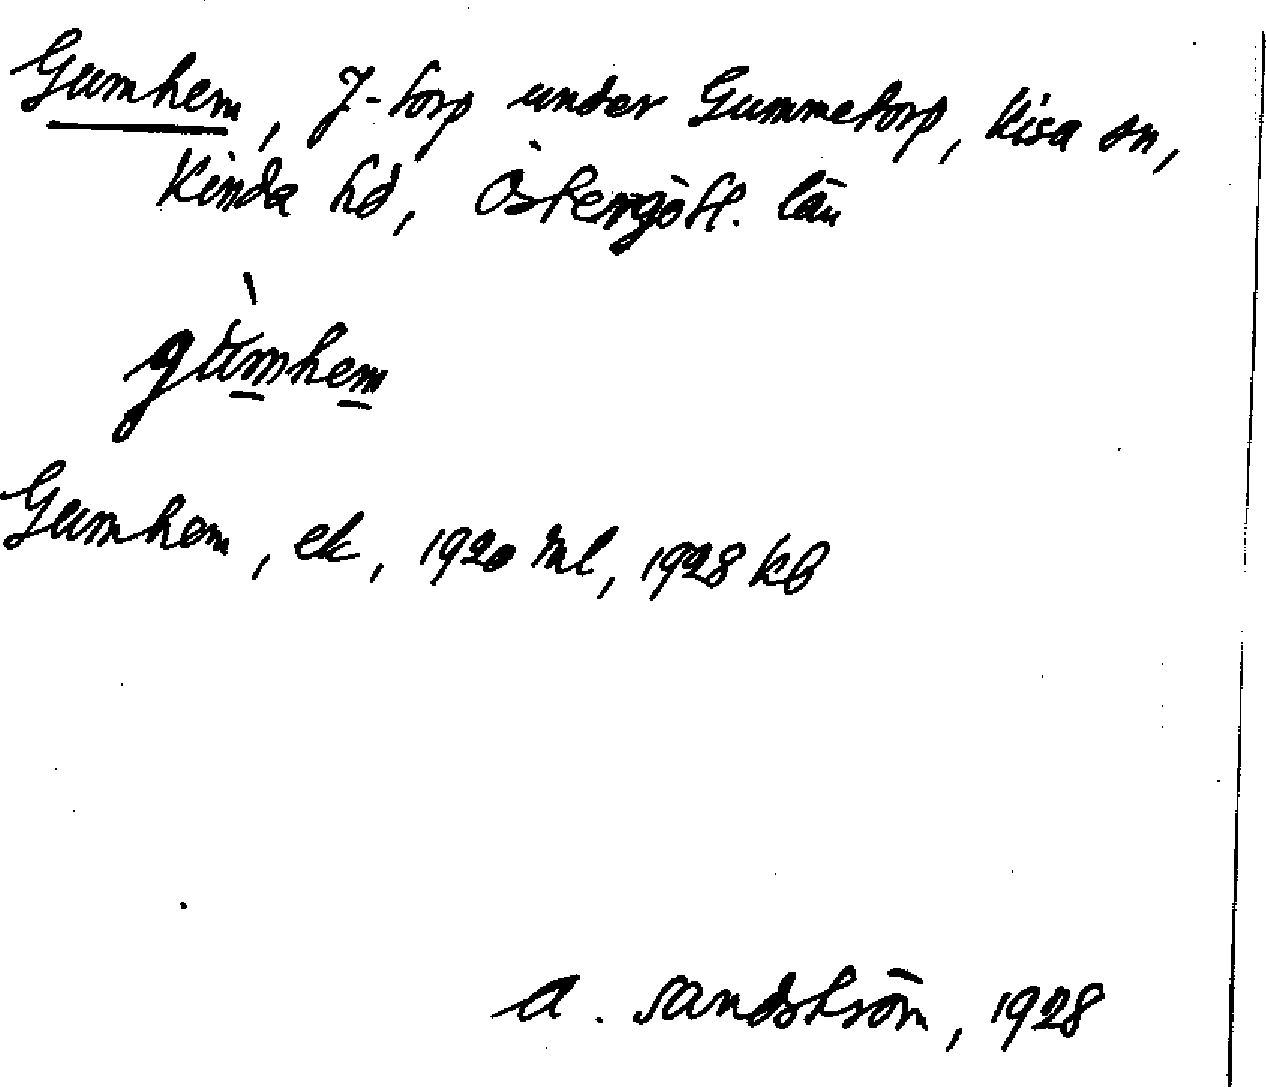 Gumhem, J-torp under Gummetorp, Kisa sn,
Kinda hd, Östergötl. län
gùmhem
Gumhem, ek, 1920 ml, 1928 kb
A. Sandström, 1928